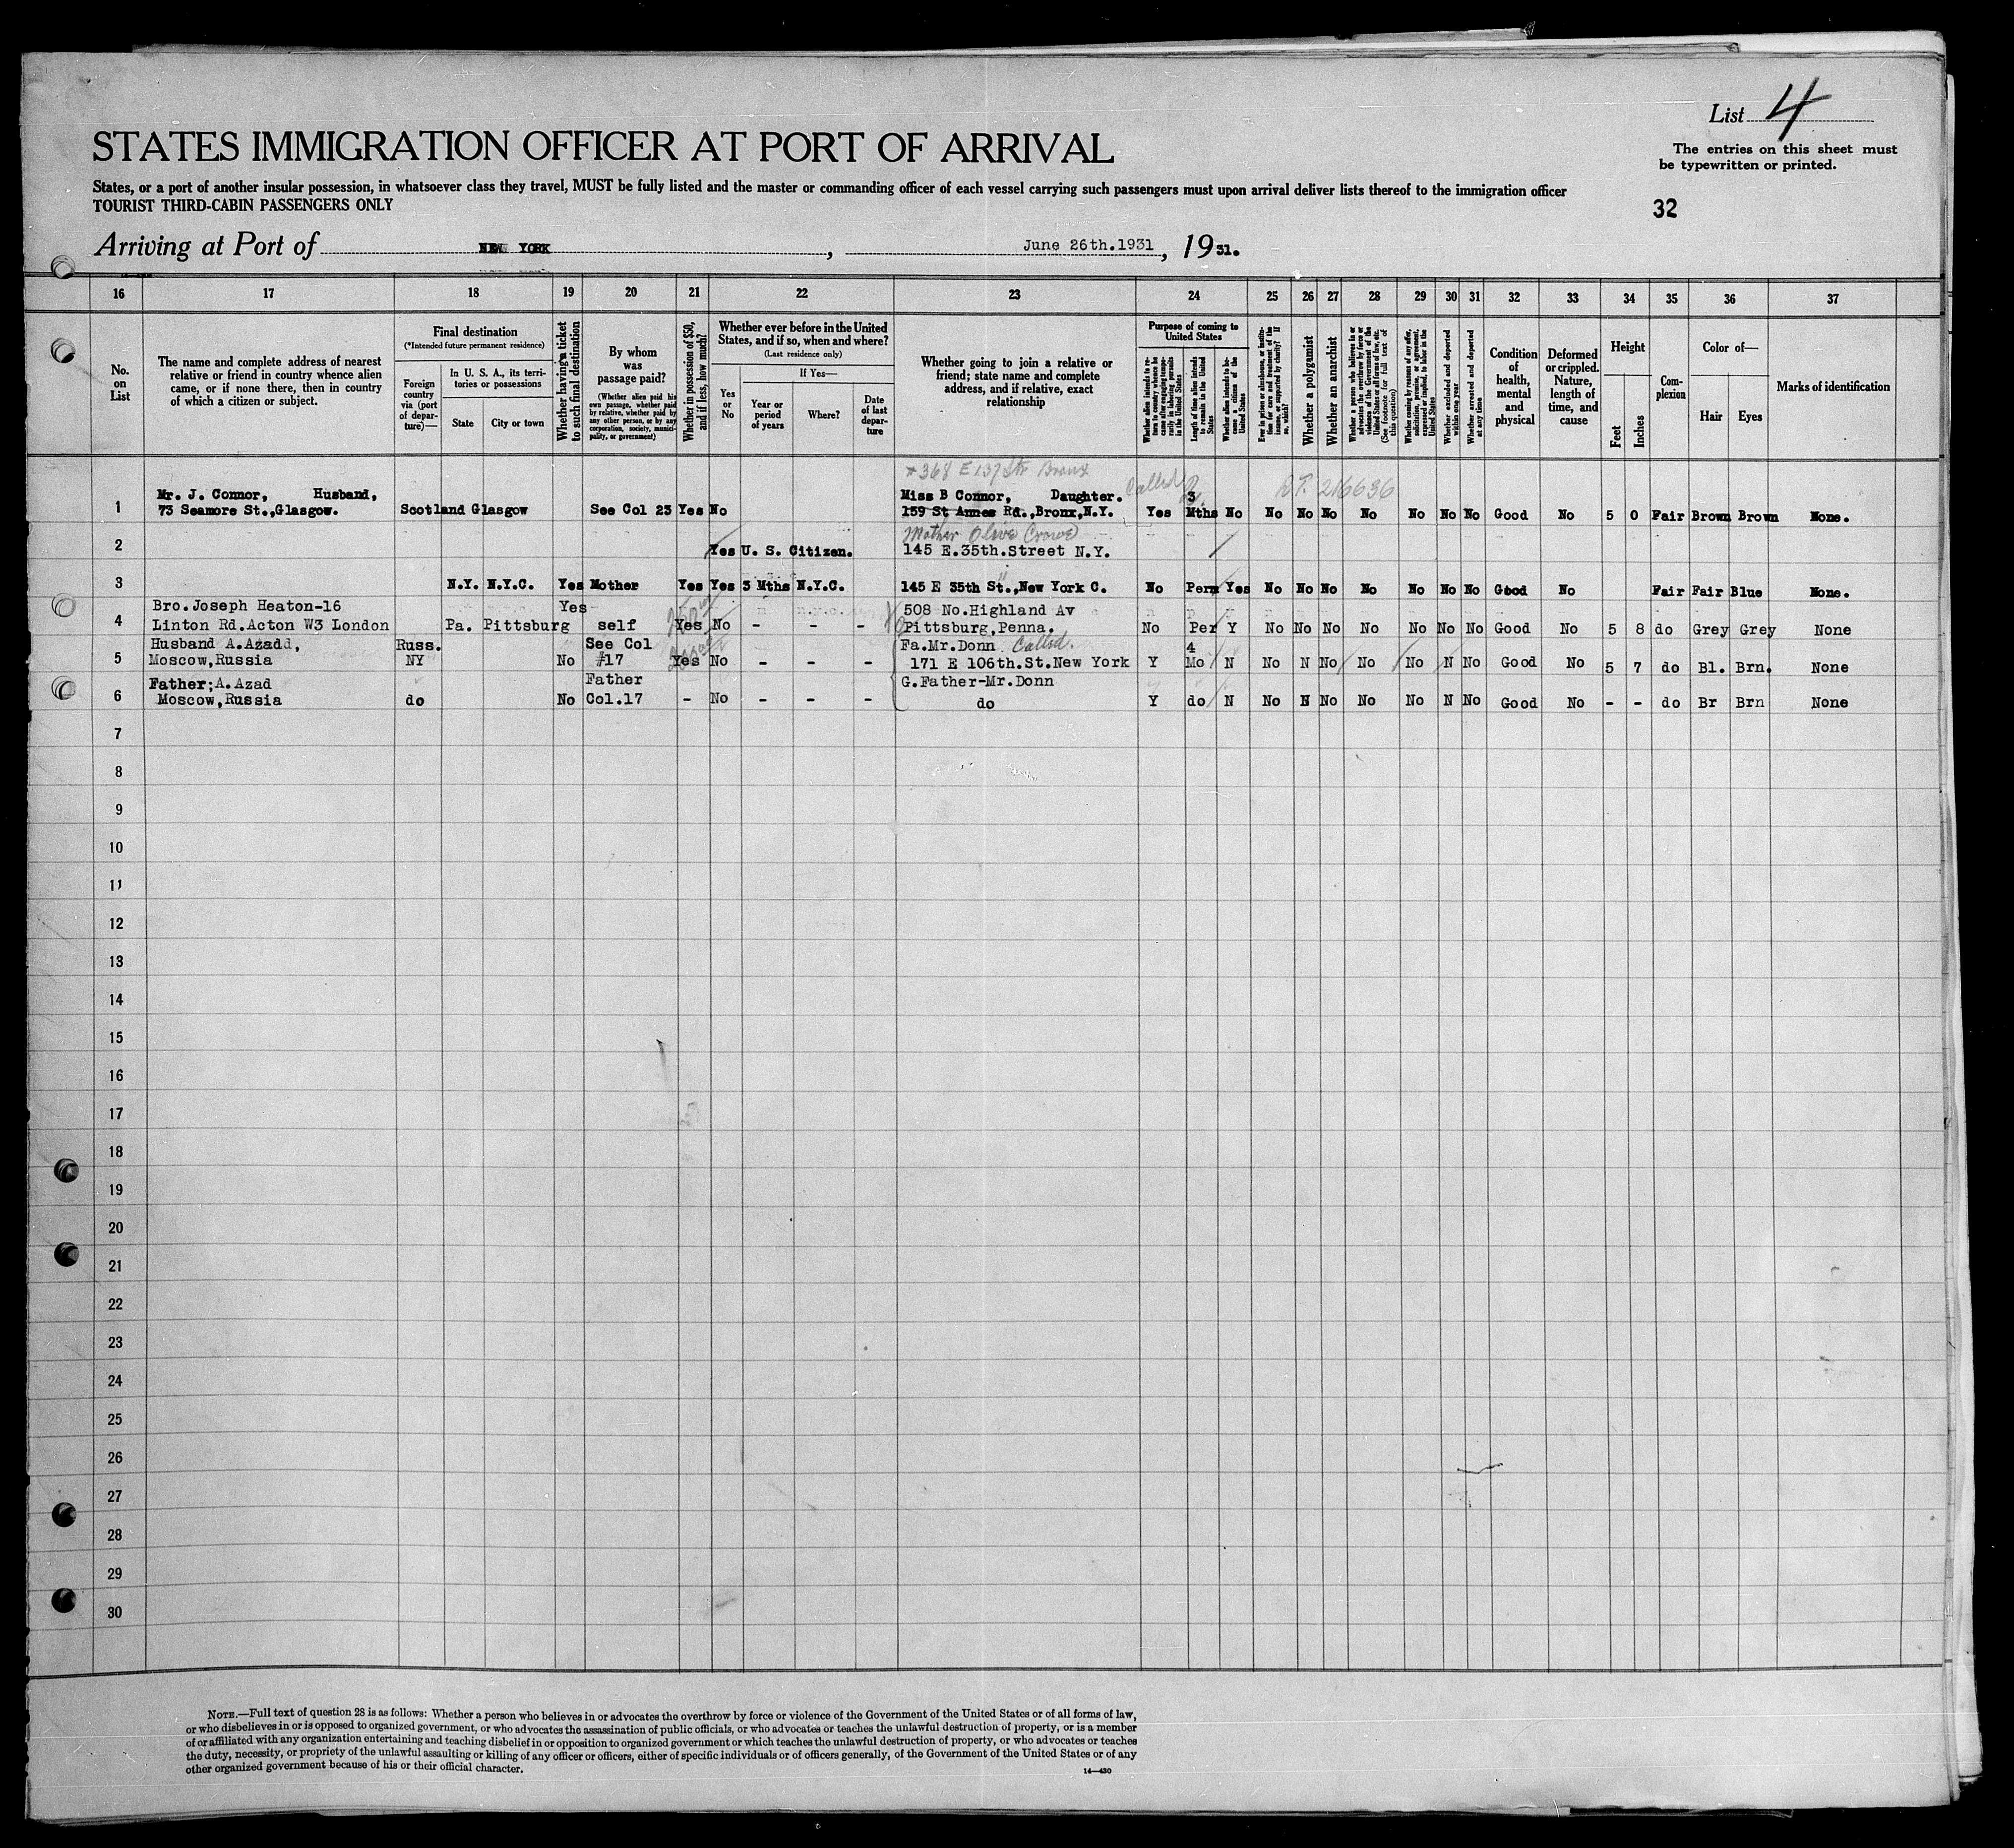 List 4
The entries on this sheet must
be typewritten or printed.
STATES IMMIGRATION OFFICER AT PORT OF ARRIVAL
States, or a port of another insular possession, in whatsoever class they travel, MUST be fully listed and the master or commanding officer of each vessel carrying such passengers must upon arrival deliver lists thereof to the immigration officer
TOURIST THIRD-CABIN PASSENGERS ONLY
32
Arriving at Port of NEW YORK , June 26th.1931 , 1931.
16 17 18 19 20 21 22 23 24 25 26 27 28 29 30 31 32 33 34 35 36 37
No.
on
List
The name and complete address of nearest
relative or friend in country whence alien
came, or if none there, then in country
of which a citizen or subject.
Final destination
(*Intended future permanent residence)
Foreign
country
via (port
of depar-
ture)—
In U. S. A., its terri-
tories or possessions
State City or town
Whether having a ticket
to such final destination
By whom
was
passage paid?
(Whether alien paid his
own passage, whether paid
by relative, whether paid by
any other person, or by any
corporation, society, munici-
pality, or government)
Whether in possession of $50,
and if less, how much?
Whether ever before in the United
States, and if so, when and where?
(Last residence only)
Yes
or
No
If Yes—
Year or
period
of years
Where?
Date
of last
depar-
ture
Whether going to join a relative or
friend; state name and complete
address, and if relative, exact
relationship
Purpose of coming to
United States
Whether alien intends to re-
turn to country whence he
came after engaging tempo-
rarily in laboring pursuits
in the United States
Length of time alien intends
to remain in the United
States
Whether alien intends to be-
come a citizen of the
United States
Ever in prison or almshouse, or institu-
tion for care and treatment of the
insane, or supported by charity? If
so, which?
Whether a polygamist
Whether an anarchist
Whether a person who believes in or
advocates the overthrow by force or
violence of the Government of the
United States or all forms of law, etc.
(See footnote for full text of
this question)
Whether coming by reasons of any offer,
solicitation, promise, or agreement,
expressed or implied, to labor in the
United States
Whether excluded and deported
within one year
Whether arrested and deported
at any time
Condition
of
health,
mental
and
physical
Deformed
or crippled.
Nature,
length of
time, and
cause
Height
Feet Inches
Com-
plexion
Color of—
Hair Eyes
Marks of identification
368 E 137 Str Bronx
Mr. J. Connor, Husband, Miss B Connor, Daughter. Called 3 RT. 216636
1 73 Seamore St.,Glasgow. Scotland Glasgow See Col 23 Yes No 159 St Annes Rd.,Bronx,N.Y. Yes Mths No No No No No No No No Good No 5 0 Fair Brown Brown None.
Mother Olive Crowe
2 Yes U. S. Citizen. 145 E.35th.Street N.Y.
3 N.Y. N.Y.C. Yes Mother Yes Yes 3 Mths N.Y.C. 145 E 35th St.,New York C. No Perm Yes No No No No No No No Good No Fair Fair Blue None.
Bro.Joseph Heaton-16 Yes 508 No.Highland Av
4 Linton Rd.Acton W3 London Pa. Pittsburg self Yes No - - - Pittsburg,Penna. No Per Y No No No No No No No Good No 5 8 do Grey Grey None
Husband A.Azadd, Russ. See Col Fa.Mr.Donn Called. 4
5 Moscow,Russia NY No #17 Yes No - - - 171 E 106th.St.New York Y Mo N No N No No No N No Good No 5 7 do Bl. Brn. None
Father;A.Azad Father G.Father-Mr.Donn
6 Moscow,Russia do No Col.17 - No - - - do Y do N No N No No No N No Good No - - do Br Brn None
7
8
9
10
11
12
13
14
15
16
17
18
19
20
21
22
23
24
25
26
27
28
29
30
NOTE.—Full text of question 28 is as follows: Whether a person who believes in or advocates the overthrow by force or violence of the Government of the United States or of all forms of law,
or who disbelieves in or is opposed to organized government, or who advocates the assassination of public officials, or who advocates or teaches the unlawful destruction of property, or is a member
of or affiliated with any organization entertaining and teaching disbelief in or opposition to organized government or which teaches the unlawful destruction of property, or who advocates or teaches
the duty, necessity, or propriety of the unlawful assaulting or killing of any officer or officers, either of specific individuals or of officers generally, of the Government of the United States or of any
other organized government because of his or their official character.
14—430